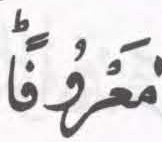 مَعْرُوفًاؕ